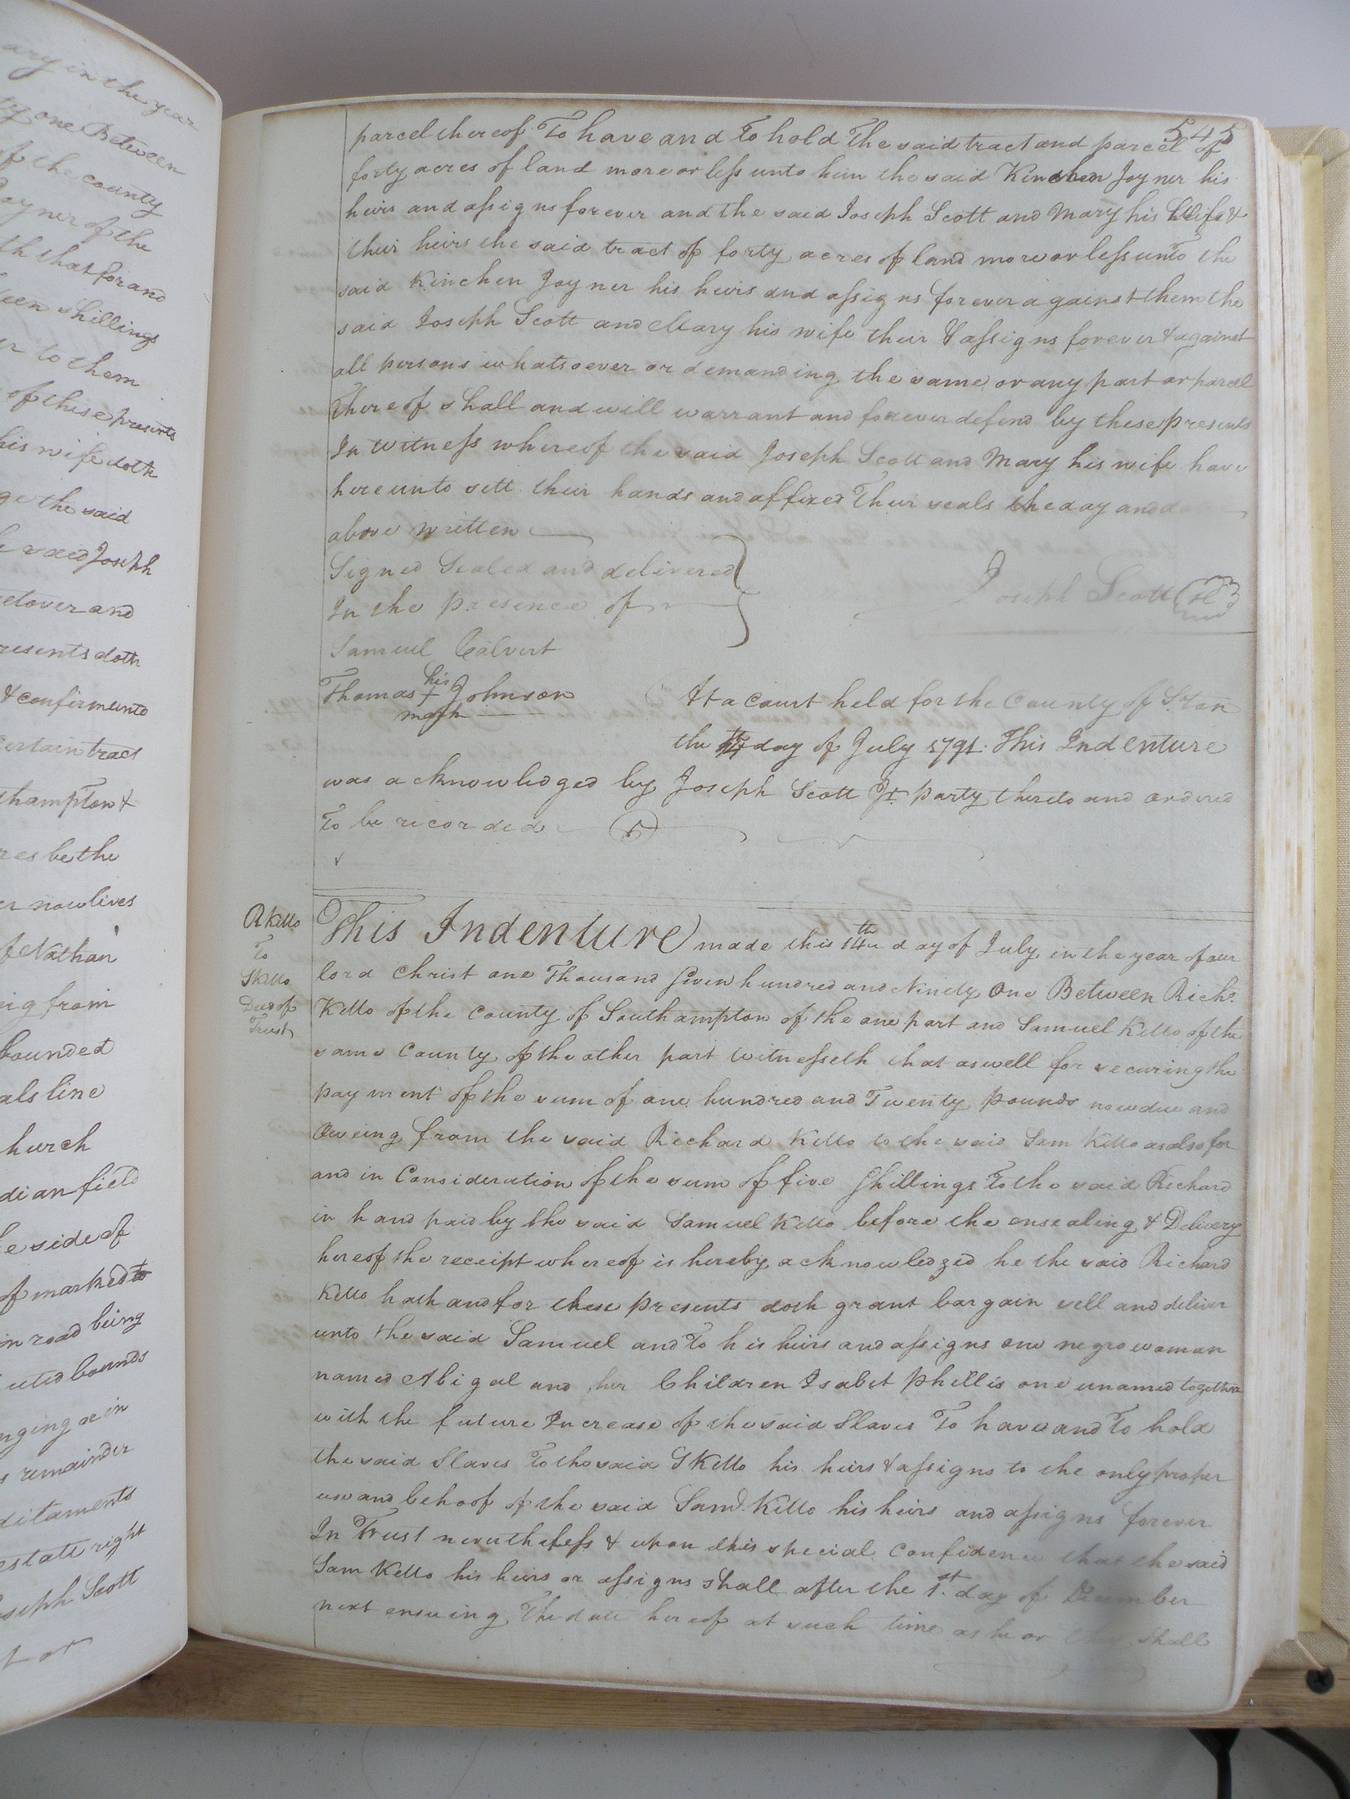 ary in the year
ty one Between
of the county
Joyner of the
th that for and
teen shillings
er to them
of these presents
his wife doth
ge the said
said Joseph
set over and
resents doth
& confirm unto
certain tract
thampton &
res be the
er now lives
of Nathan
ing from
bounded
als line
hurch
dian field
e side of
of marked to
in road being
uted bounds
nging or in
s remainder
ditaments
estate right
oseph Scott
545
parcel thereof To have and to hold The said tract and parcel of
forty acres of land more or less unto him the said Kinchen Joyner his
heirs and assigns forever and the said Joseph Scott and Mary his Wife &
their heirs the said tract of forty acres of land more or less unto the
said Kinchen Joyner his heirs and assigns forever against them the
said Joseph Scott and Mary his wife their & assigns forever & against
all persons whatsoever or demanding the same or any part or parcel
Thereof shall and will warrant and forever defend by these presents
In Witness whereof the said Joseph Scott and Mary his wife have
hereunto sett their hands and affixed Their seals the day and
above written
Signed Sealed and delivered
In the presence of
Joseph Scott
Samuel Calvert
Thomas his + Johnson
mark
At a Court held for the County of S.ton
the 14th day of July 1791. This Indenture
was acknowledged by Joseph Scott Jr party thereto and ordered
To be recorded
R Kitto
To
S Kitto
Deed of
Trust
This Indenture made this 14th day of July in the year of our
lord Christ one Thousand seven hundred and Ninety One Between Richd
Kitto of the County of Southampton of the one part and Samuel Kitto of the
same County of the other part Witnesseth that as well for securing the
payment of the sum of one hundred and Twenty pounds now due and
Oweing from the said Richard Kitto to the said Sam Kitto as also for
and in Consideration of the sum of five Shillings To the said Richard
in hand paid by the said Samuel Kitto before the ensealing & Delivery
hereof the receipt whereof is hereby acknowledged he the said Richard
Kitto hath and for these presents doth grant bargain sell and deliver
unto the said Samuel and To his heirs and assigns one negro woman
named Abigal and her Children Isabet Phillis one unamed together
with the future Increase of the said Slaves To have and To hold
the said Slaves To the said S Kitto his heirs & assigns to the only proper
use and behoof of the said Saml. Kitto his heirs and assigns forever
In Trust nevertheless & upon this special Confidence that the said
Sam Kitto his heirs or assigns shall after the 1st. day of December
next ensuing The date hereof at such time as he or they shall